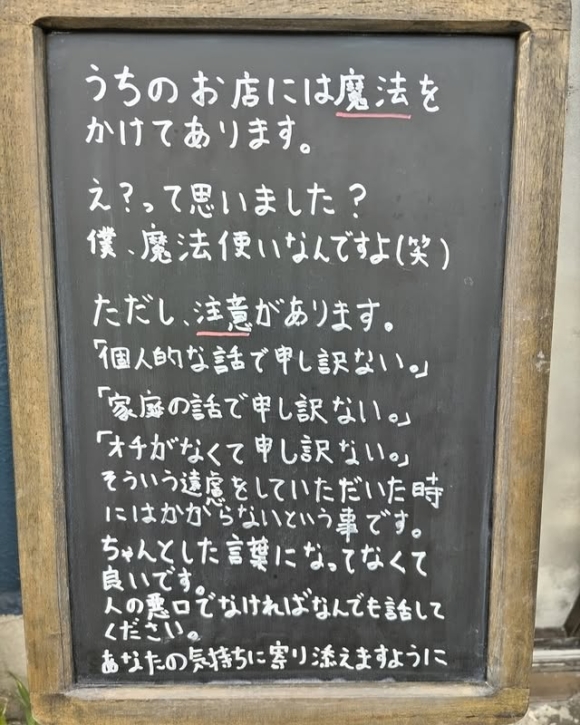 うちのお店には魔法を
かけてあります。
え?って思いました?
僕、魔法使いなんですよ(笑)
ただし、注意があります。
「個人的な話で申し訳ない。」
「家庭の話で申し訳ない。」
「オチがなくて申し訳ない。」
そういう遠慮をしていただいた時
にはかからないという事です。
ちゃんとした言葉になってなくて
良いです。
人の悪口でなければなんでも話して
ください。
あなたの気持ちに寄り添えますように